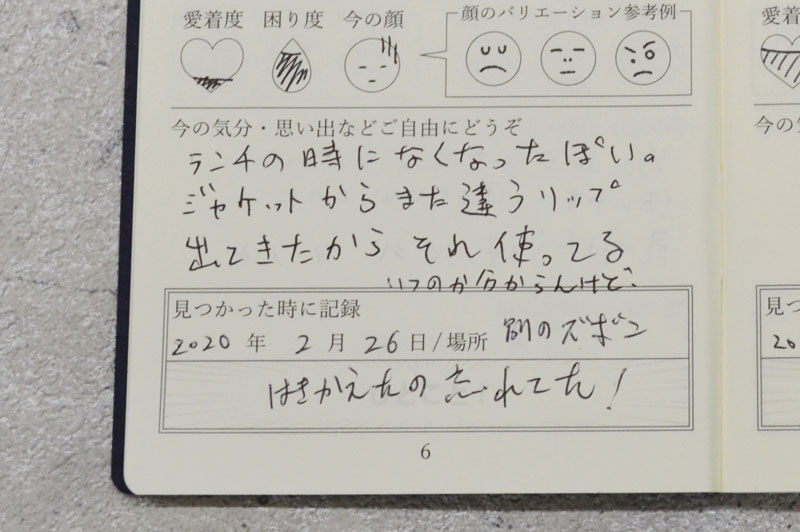 愛着度 困り度 今の顔 顔のバリエーション参考例
今の気分・思い出などご自由にどうぞ
ランチの時になくなったぽい。
ジャケットからまた違うリップ
出てきたからそれ使ってる
いつのか分からんけど。
見つかった時に記録
2020年 2月 26日/場所 別のズボン
はきかえたの忘れてた!
6
愛着
今の気
見つ
20